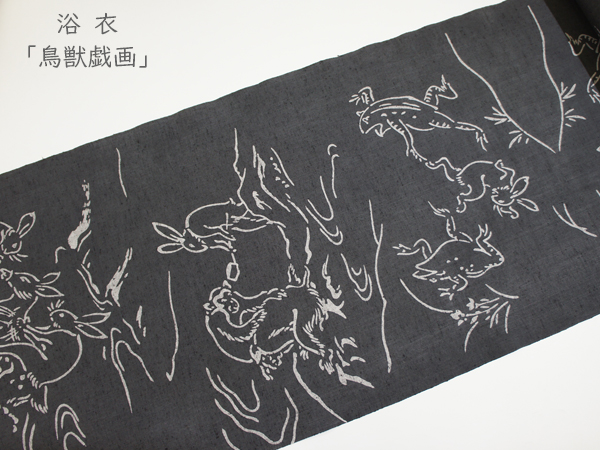 浴衣
「鳥獣戯画」